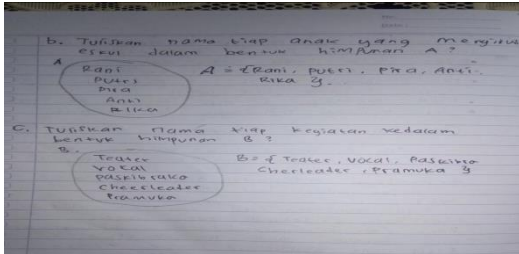 b. Tuliskan nama tiap anak yang mengikuti
eskul dalam bentuk himpunan A ?
A
Rani
Putri
Pira
Anti
Rika
A = {Rani, Putri, Pira, Anti,
Rika }.
C. Tuliskan nama tiap kegiatan kedalam
bentuk himpunan B ?
B.
Teater
Vokal
Paskibraka
Cheerleader
Pramuka
B = { Teater, Vocal, Paskibra
Cheerleader, Pramuka }